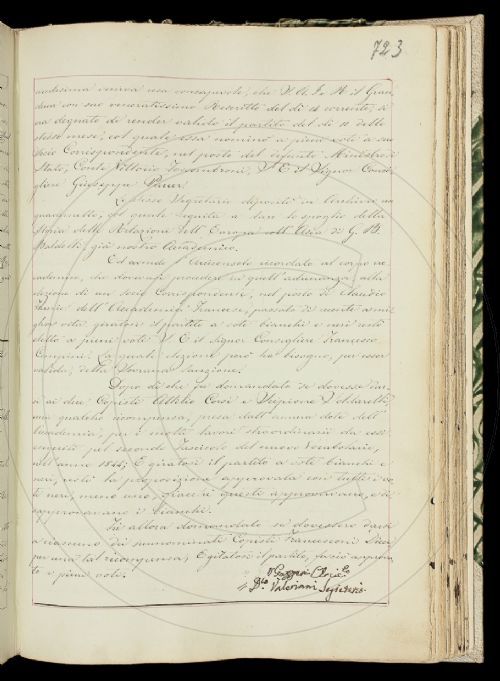 723
adunanza venne resa consapevole, che S. A. I. R. il Gran
duca con suo veneratissimo Rescritto del dì 14 corrente, si
era degnato di render valido il partito del dì 10 dello
stesso mese; col quale essa nominò a pieni voti a suo
Socio Corrispondente, nel posto del defunto Ministro di
Stato, Conte Vittorio Fossombroni, S. E. il Signor Consi
gliere Giuseppe Pauer.
Lo stesso Segretario depositò in
quale seguita a dare lo spoglio della
Storia delle Relazioni dell' Europa coll' Asia di G. B.
Baldelli, già nostro Accademico.
Ed avendo l' ricordato al corpo ac
cademico, che dovevasi procedere in quell' adunanza alla
elezione di un Socio Corrispondente, nel posto di Claudio
dell' Accademia Francese, passato di recente a mi
glior vita; giratosi il partito a voti bianchi e neri restò
eletto a pieni voti S. E. il Signor Consigliere Francesco
Cempini: La quale elezione però ha bisogno, per esser
valida, della Sovrana Sanzione.
Dopo di che fu domandato se dovesse dar
si ai due Copisti Attilio Corsi e Scipione
una qualche ricompensa, presa dall' annua dote dell'
Accademia, per i molti lavori straordinarii da essi
eseguiti pel secondo Fascicolo del nuovo Vocabolario,
nell' anno 1844; E giratosi il partito a voti bianchi e
neri, restò la proposizione approvata con tutti i vo
ti neri, meno uno, giacchè questi approvavano, e di
sapprovavano i bianchi.
Fu allora domandato se dovessero darsi
a ciascuno dei summenzionati Copisti Francesconi
per una tal ricompensa; E giratosi il partito, fu approva
to a pieni voti.
Valeriani Segretario.